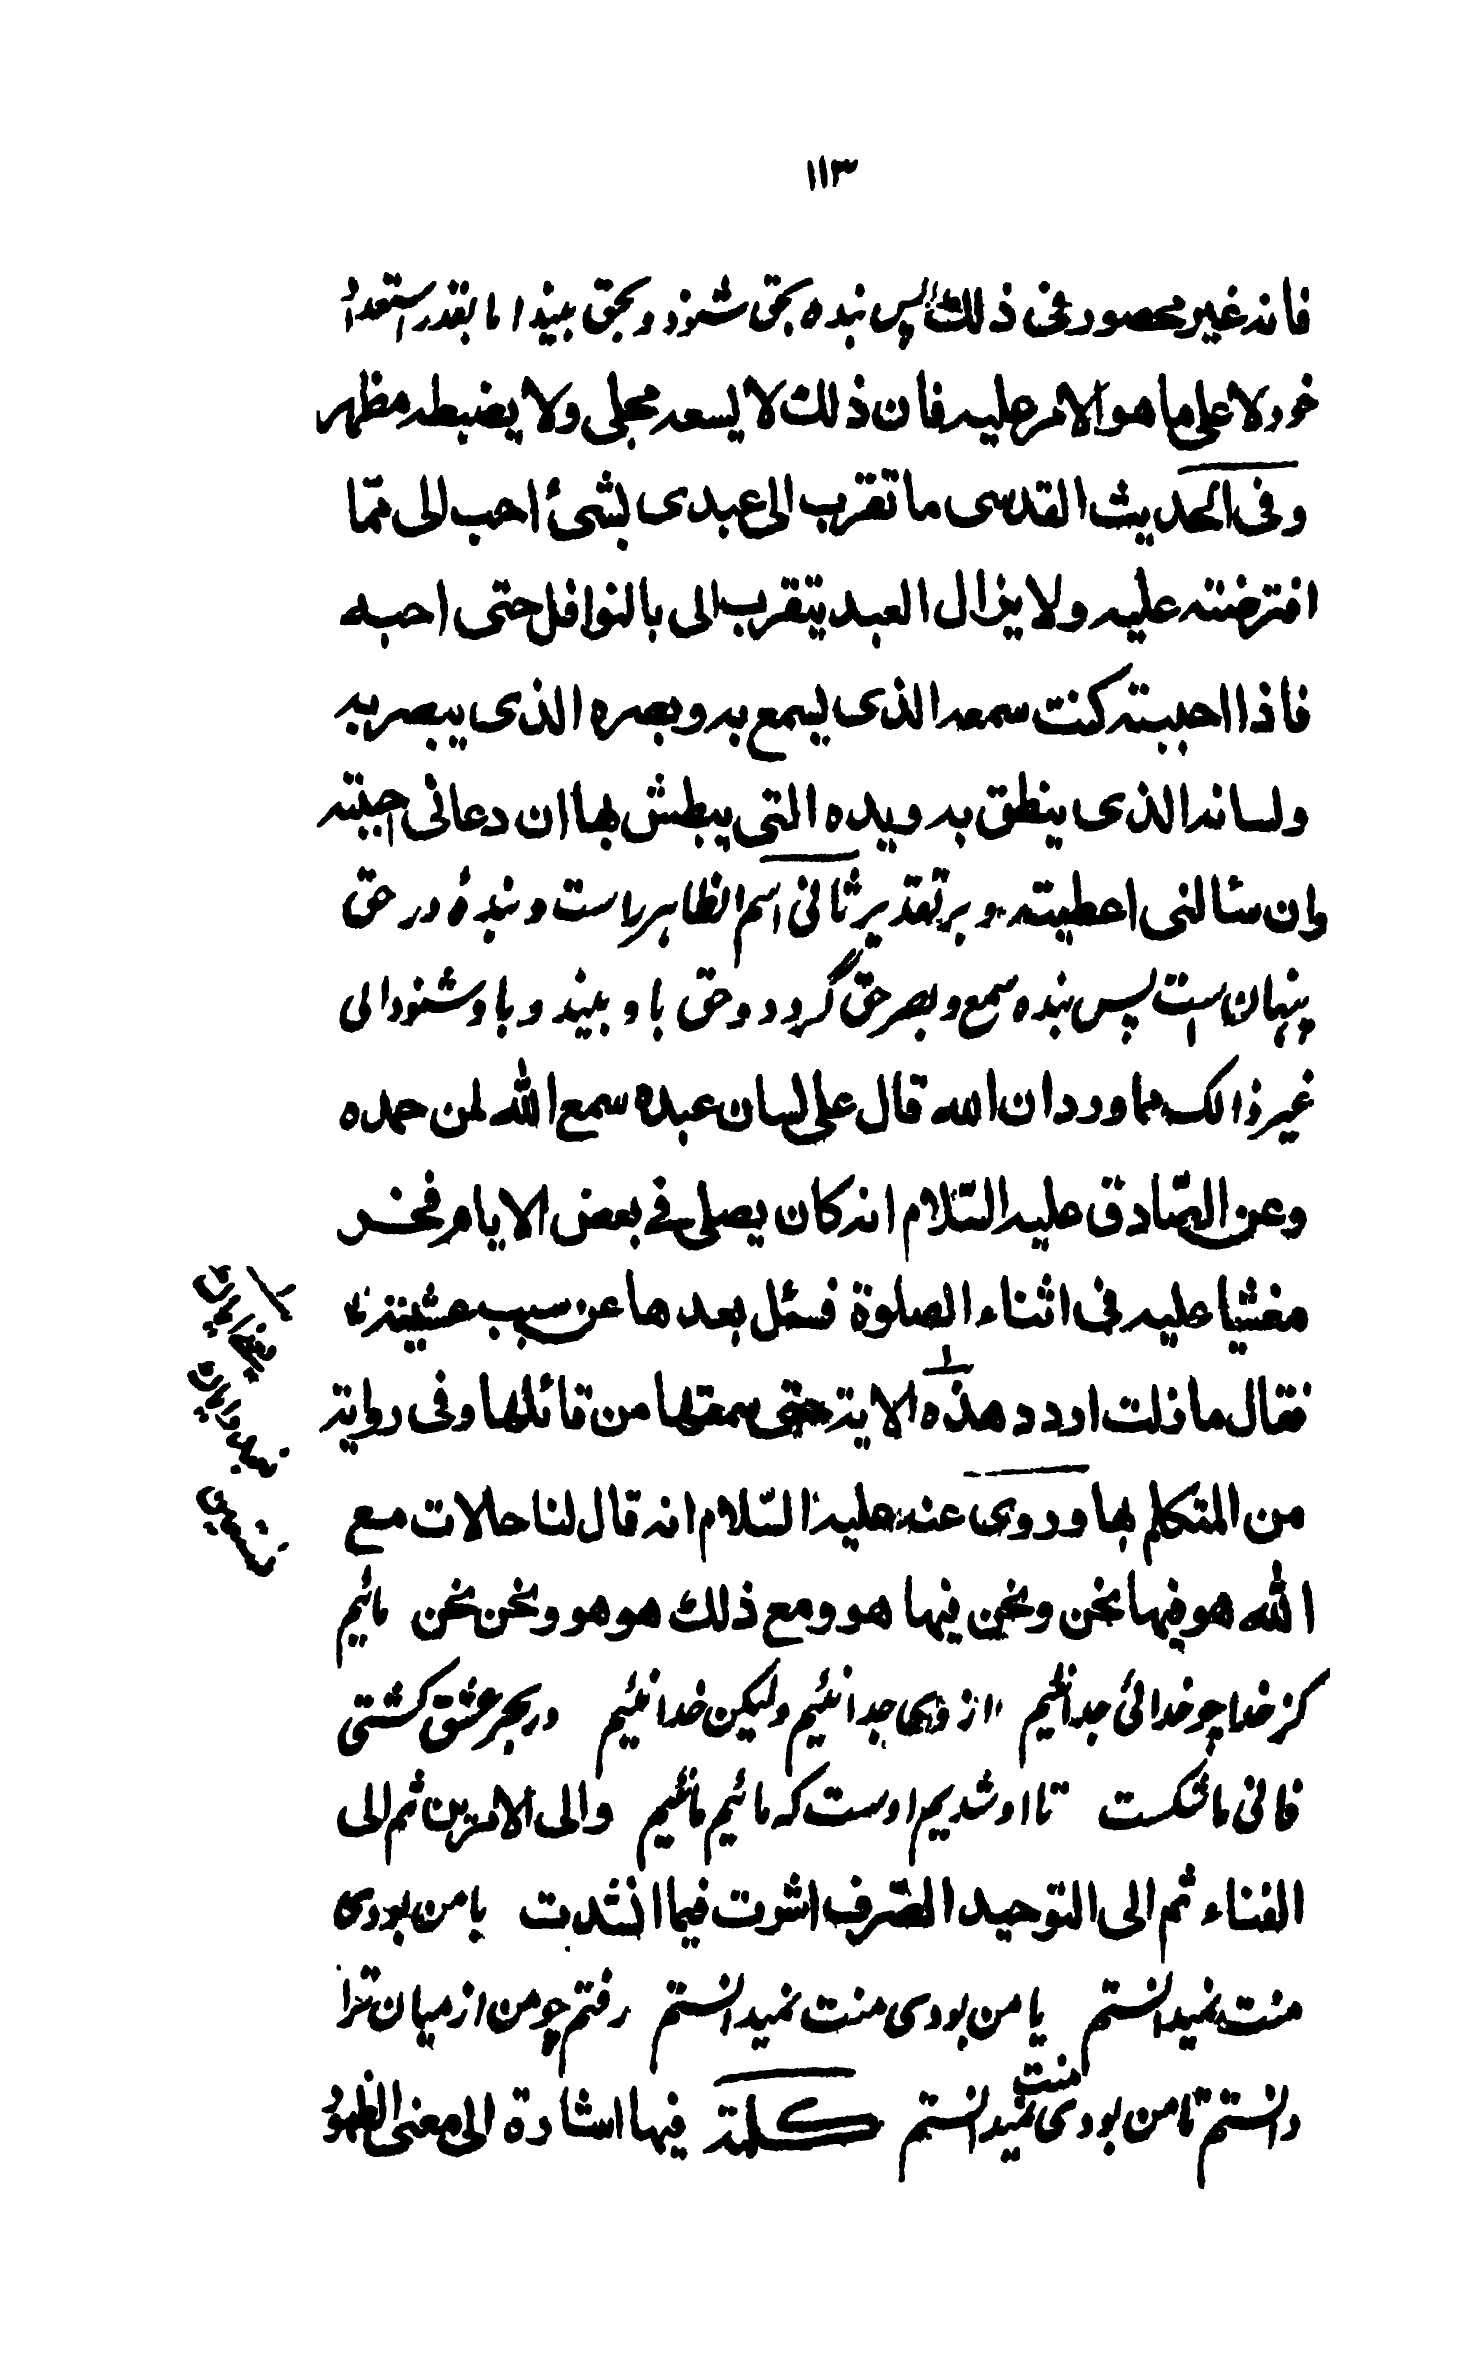 ۱۱۳
فانه غیر محصور فی ذلک پس بنده بحق شنود و بحق بیند اما بقدر استعداد
خود لا علی ما هو الامر علیه فان ذلک لا یسعه مجلی ولا یضبطه مظهر
وفی الحدیث القدسی ما تقرب الی عبدی بشئ احب الی مّما
افترضته علیه ولا یزال العبد یتقرب الی بالنوافل حتی احبه
فاذا احببته کنت سمعه الذی یسمع به وبصره الذی یبصر به
ولسانه الذی ینطق به ویده التی یبطش بها ان دعانی اجبته
وان سئالنی اعطیته و بر تقدیر ثانی اسم الظاهر راست و بندهٔ در حق
پنهان است پس بنده سمع و بصر حق گردد و حق باو بیند و باو شنود الی
غیر ذالک مما ورد ان الله قال علی لسان عبده سمع الله لمن حمده
وعن الصّادق علیه السّلام انه کان یصلی فی بعض الایام فخر
مغشیا علیه فی اثناء الصلوة فسئل بعدها عن سبب غشیته
فقال ما زلت اردد هذه الایة حتی سمعتها من قائلها وفی روایة
من المتکلم بها وروی عنه علیه السّلام انه قال لنا حالات مع
الله هو فیها نحن ونحن فیها هو ومع ذلک هو هو ونحن نحن مائیم
کز خدا چو خدائی جدا نئیم از وی جدا نئیم ولیکن خدا نئیم در بحر عشق کشتی
فانی ما شکست تا او شدیم اوست که مائیم ما نئیم والی الامرین ثم الی
الفناء ثم الی التوحید الصّرف اشرت فیما انشدت با من بودی
منت نمیدانستم یا من بودی منت نمیدانستم رفتم چو من از میان ترا
دانستم تا من بودی منت نمیدانستم کلمة فیها اشارة الی معنی الظهور